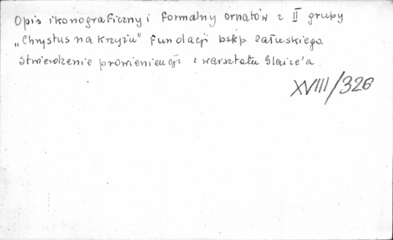 Opis ikonograficzny i formalny ornatów z II grupy
„Chrystus na krzyżu" fundacji bskp Załuskiego.
Stwierdzenie proweniencji i warsztatu Slaize'a.
XVIII/326